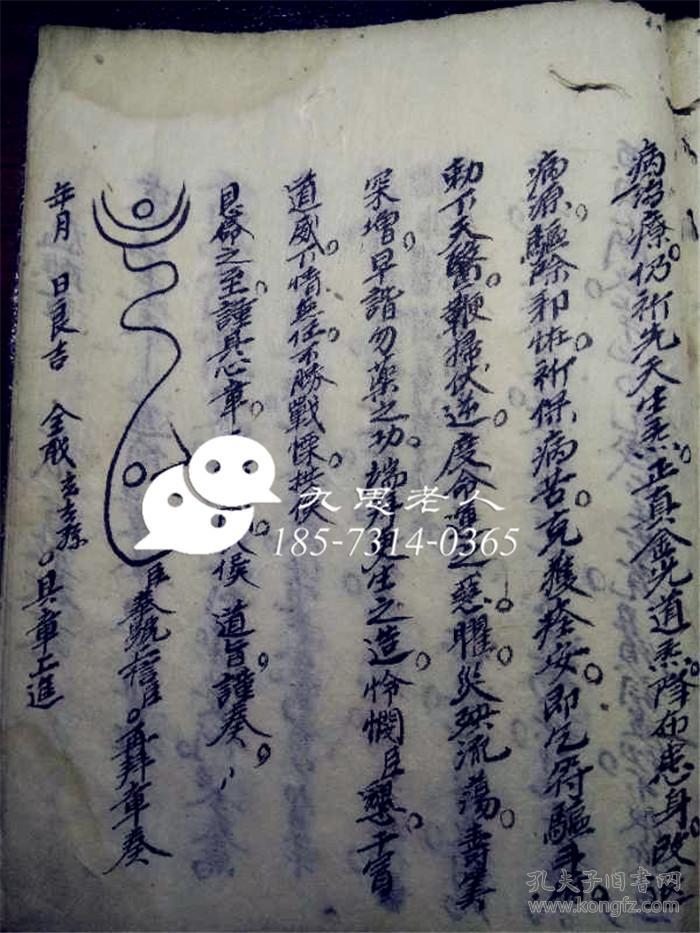 病治療。仍祈先天生炁。正真金光道炁。降布患身。改
病源。驅除邪怪。祈保病苦。克獲痊安。即乞符驅
勅下天醫。鞭掃伏逆。度命運之惡曜。災殃流蕩。壽
深增。早諧勿藥之功。端拜更生之造。怜憫且懇。干冒
道威。下情無任。不勝戰慄
恩命之至。謹具心章。俟 道旨。謹奏。
再拜章奏
年月 日良吉 全戒 。具章上進
九思老人
185-7314-0365
孔夫子旧书网
www.kongfz.com